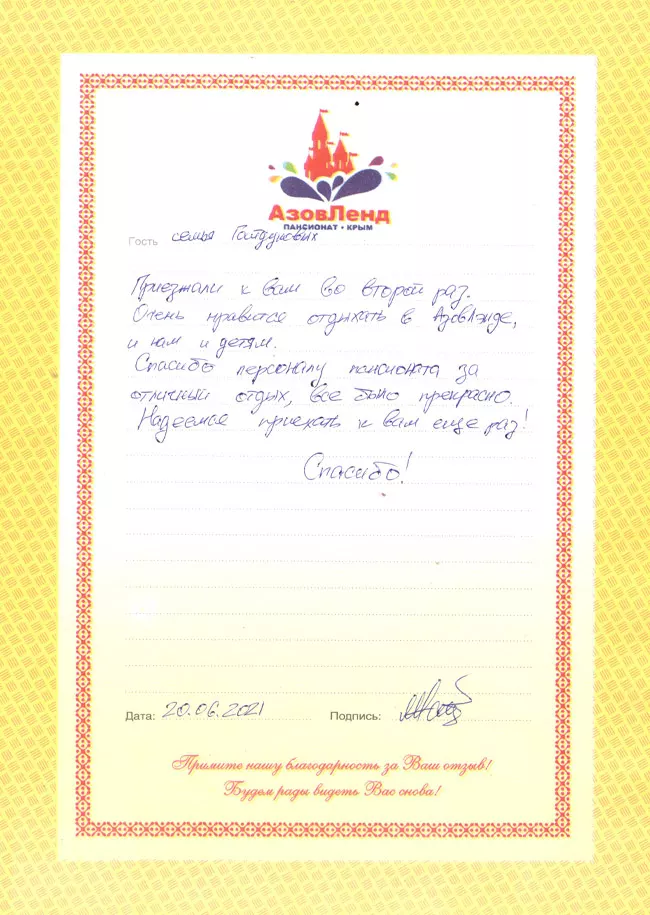 АзовЛенд
ПАНСИОНАТ • КРЫМ
Гость семья
Приезжали к вам во второй раз.
Очень нравится отдыхать в АзовЛэнде,
и нам и детям.
Спасибо персоналу пансионата за
отличный отдых, все было прекрасно.
Надеемся приехать к вам еще раз!
Спасибо!
Дата: 20.06.2021 Подпись:
Примите нашу благодарность за Ваш отзыв!
Будем рады видеть Вас снова!